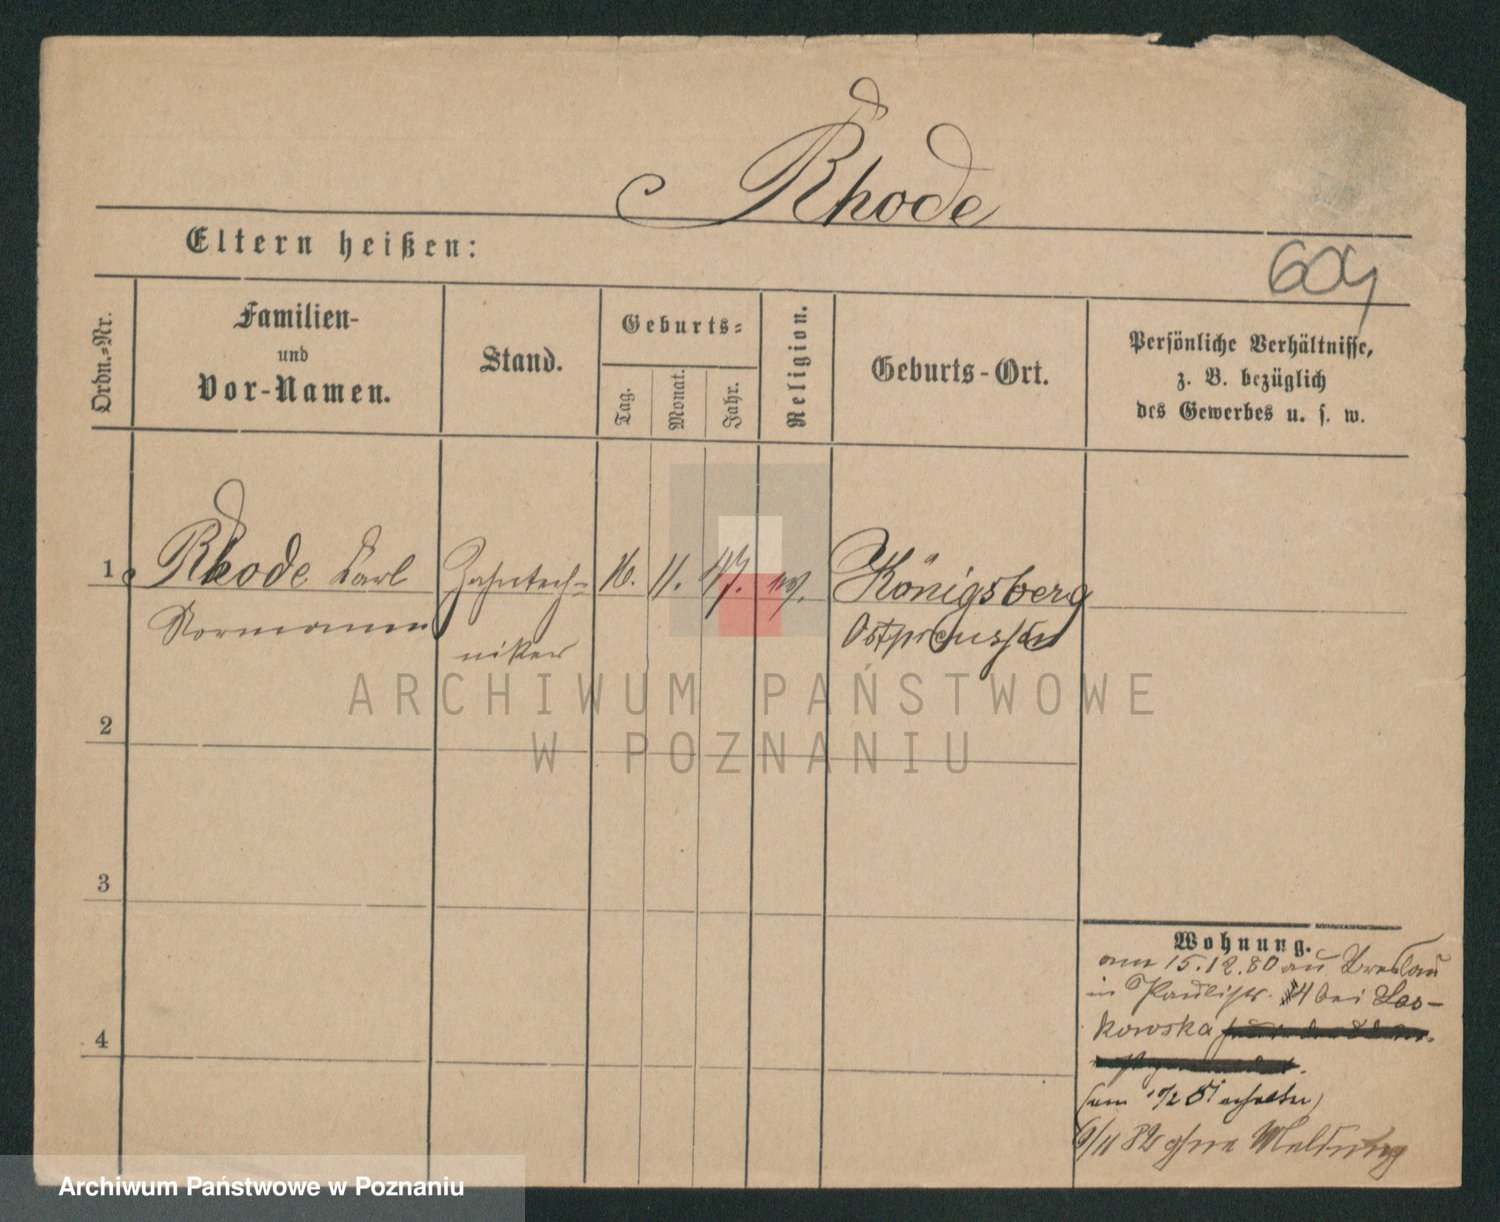 Rhode
Eltern heißen:
604
Ordn.-Nr.
Familien-
und
Vor-Namen.
Stand.
Geburts-
Tag.
Monat.
Jahr.
Religion.
Geburts-Ort.
Persönliche Verhältnisse,
z. B. bezüglich
des Gewerbes u. s. w.
1
Rhode Carl
Zahntech-
16. 11. 47. ev.
Königsberg
niker
Ostpreussen
ARCHIWUM PAŃSTWOWE
W POZNANIU
2
3
4
Wohnung.
am 15.12.80 aus Breslau
in Paulistr. 4 bei Las-
kowska
9/11 82 ohne Meldung
Archiwum Państwowe w Poznaniu